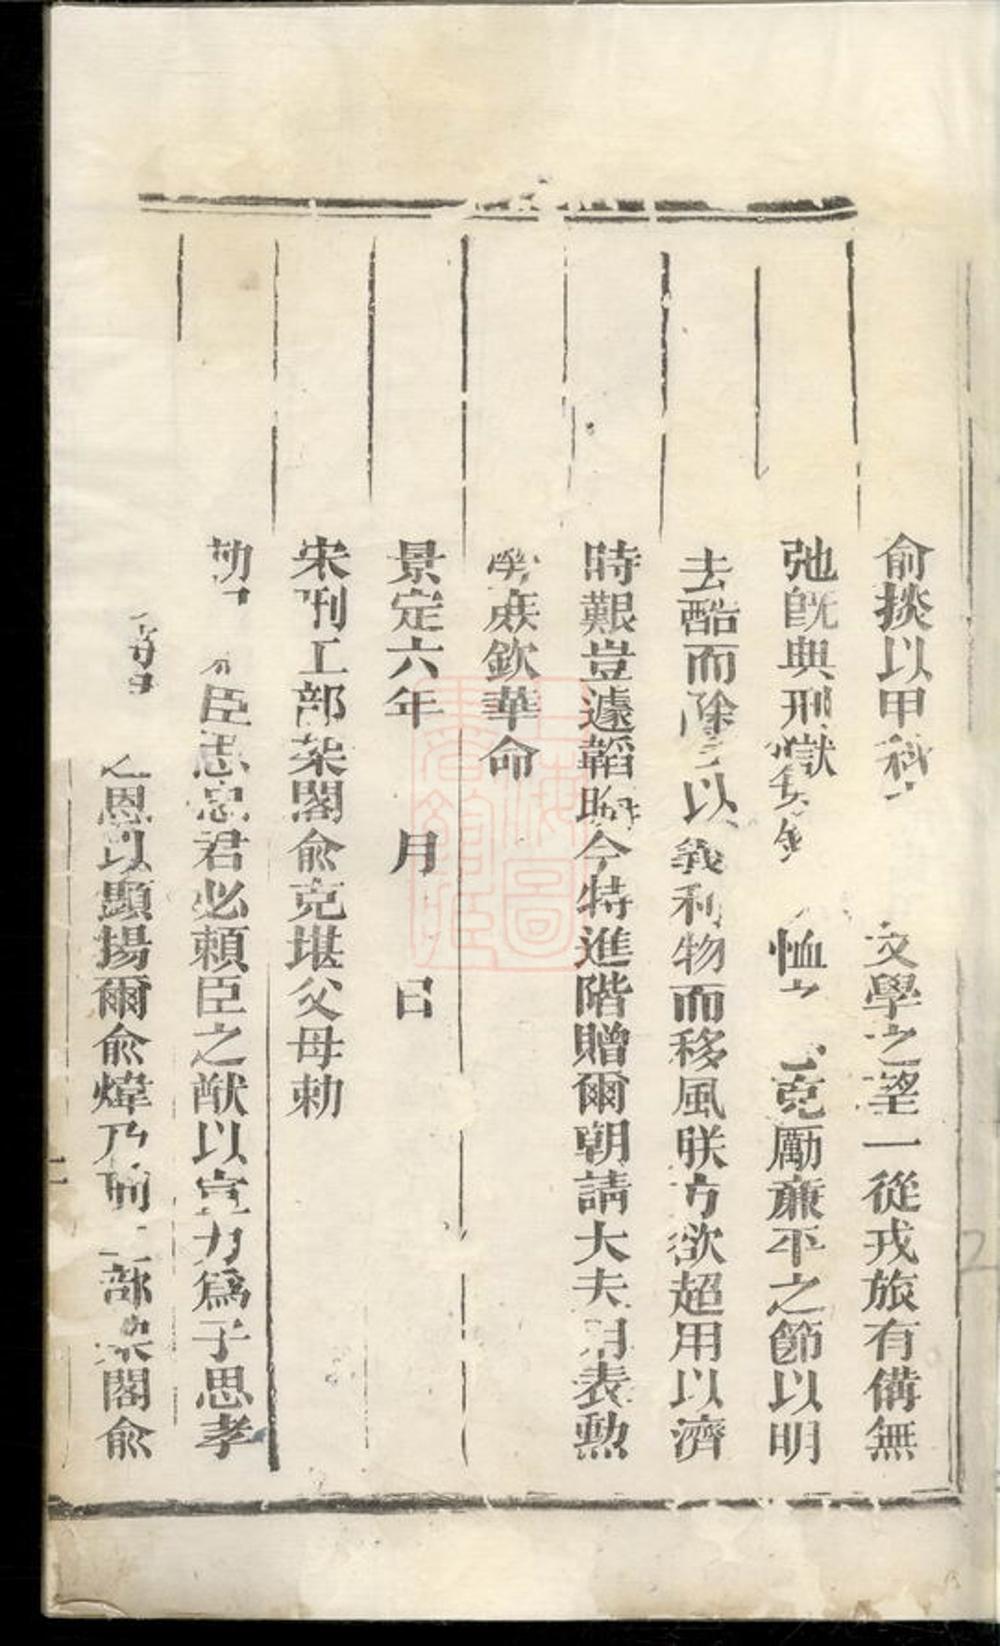 俞掞以甲科文學之望一從戎旅有備無
弛既典刑獄恤克厲亷平之節以明
去酷而除以義利物而移風朕方欲超用以濟
時艱豈遽韜晦今特進階贈爾朝請大夫用表勲
族欽華命
景定六年　月　日
宋刑工部架閣俞克堪父母勅
勅臣思忠君必賴臣之猷以宣力爲子思孝
之恩以顯揚爾俞煒乃刑工部架閣俞
二